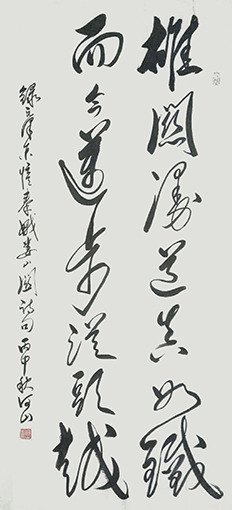 雄關漫道真如鐵
而今邁步從頭越
錄毛澤東憶秦娥婁山關詩句 丙申秋